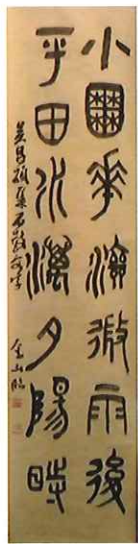 小囿華微雨後
平田水夕陽時
吴昌碩集石鼓文字 金山臨